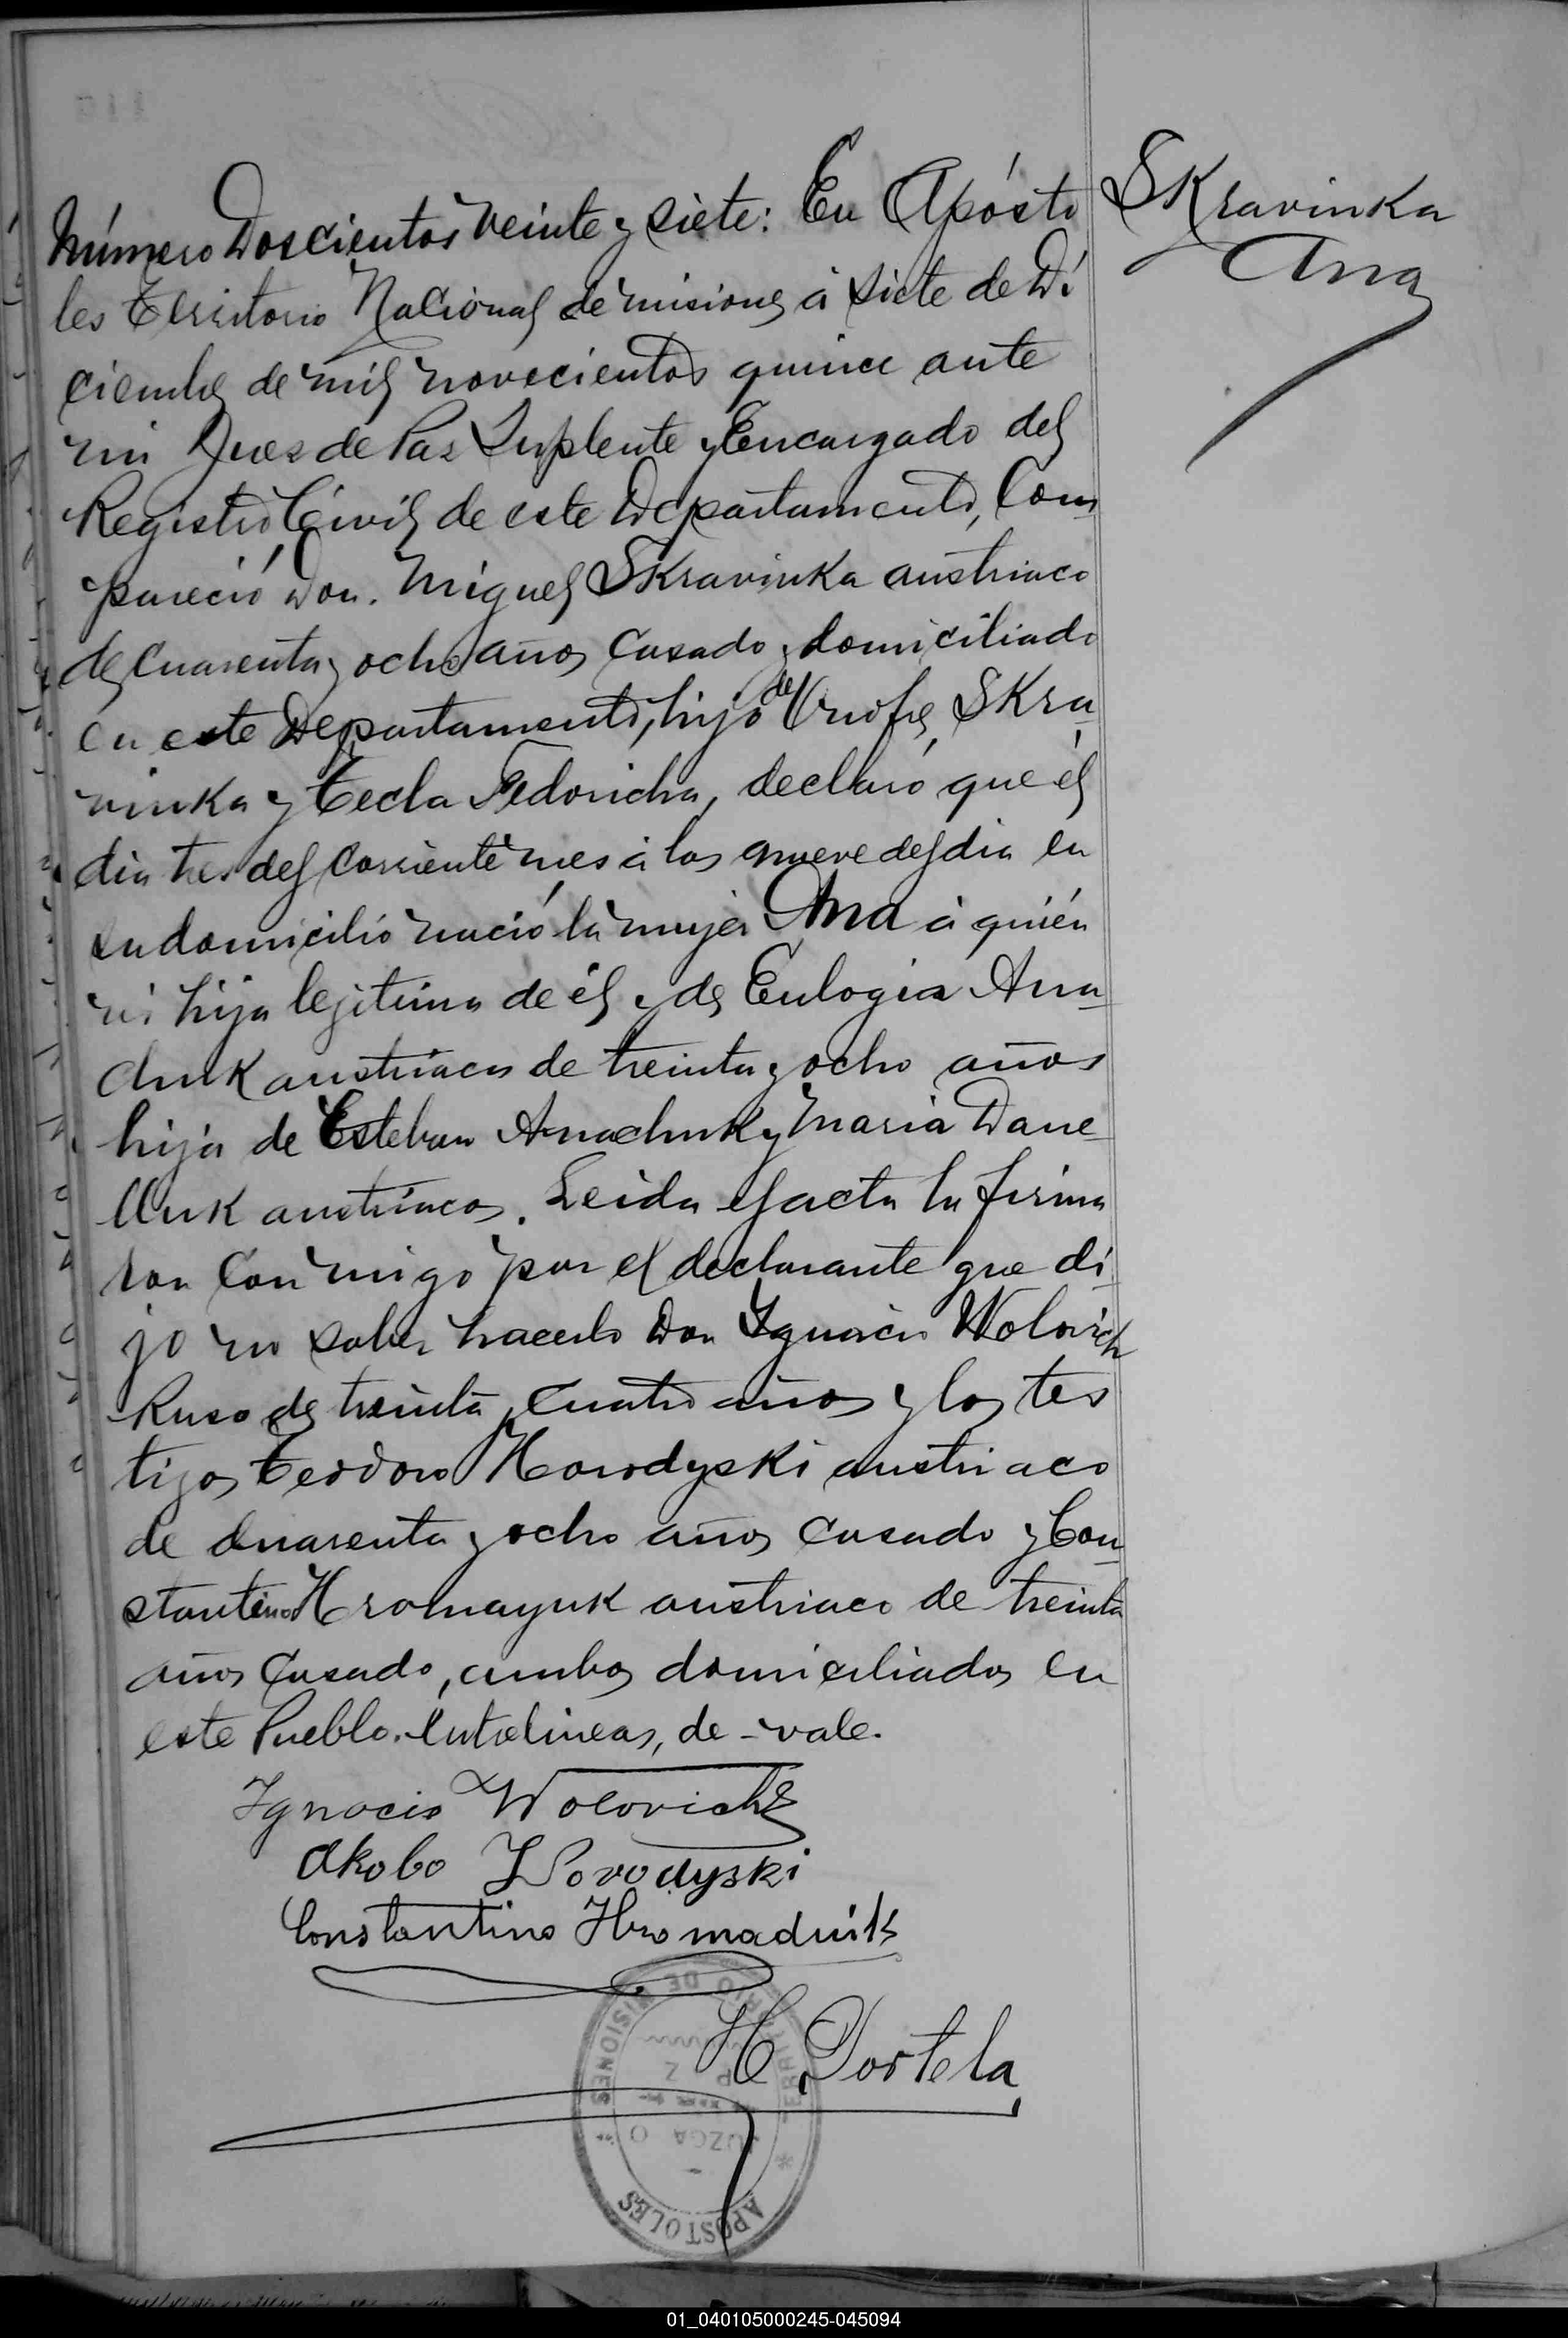 Skravinka
Ana
Número Doscientos veinte y siete: En Apósto
les Territorio Nacional de misiones á siete de Di
ciembre de mil novecientos quince ante
mi Juez de Paz Suplente y Encargado del
Registro Civil de este Departamento, Com
pareció Don. Miguel Skravinka austriaco
de cuarenta y ocho años casado y domiciliado
en este Departamento, hijo de Onofre Skra
vinka y Tecla Fedoricha, declaró que él
dia tres del corriente mes á las nueve del dia en
su domicilio nació la mujer Ana á quién
vi hija lejitima de él y de Eulogia Ana
chuk austriaca de treinta y ocho años
hija de Esteban Anachuk y Maria Dane
lluk austriacos. Leida el acta la firma
ron conmigo por el declarante que di
jo no saber hacerlo Don Ignacio Wolovich
Ruso de treinta y cuatro años y los tes
tigos Teodoro Horodyski austriaco
de cuarenta y ocho años casado y Con
stantino Hromayuk austriaco de treinta
años casado, ambos domiciliados en
este Pueblo. Entrelineas, de - vale.
Ignacio Wolovich
Horodyski
Constantino Hromadiuk
H Portela
TERRITORIO DE MISIONES
APOSTOLES
01_040105000245-045094